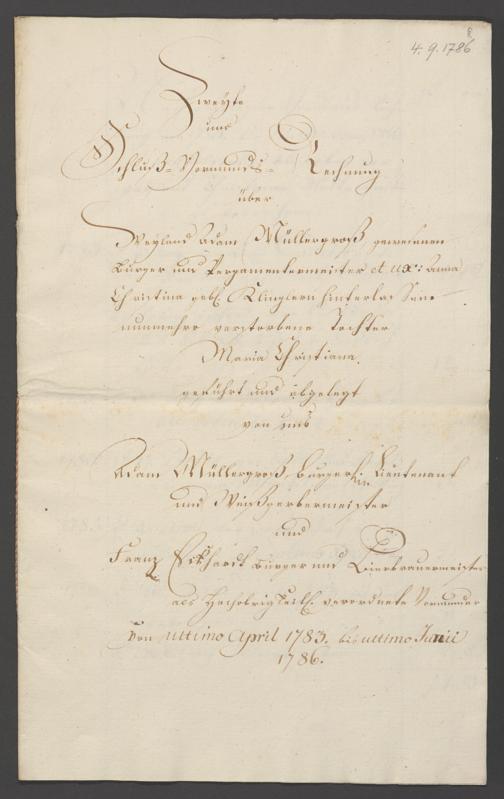 8
4. 9. 1786
Zweyte
und
Schluß-Vormunds-Rechnung
über
Weyland Adam Müllergroß gewesenen
Burger und Pergamentermeister et ux: Anna
Christina geb. Klinglern hinterlaßene
nunmehro verstorbene Tochter
Maria Christiana.
geführt und abgelegt
von uns
Adam Müllergroß Burgerl. Lieutenant
und Weißgerbermeister
und
Franz Eckhardt Burger und Bierbrauermeister
als Hochobrigkeitl. verordnete Vormunder
Von ultimo April 1783. bis ultimo Junii
1786.